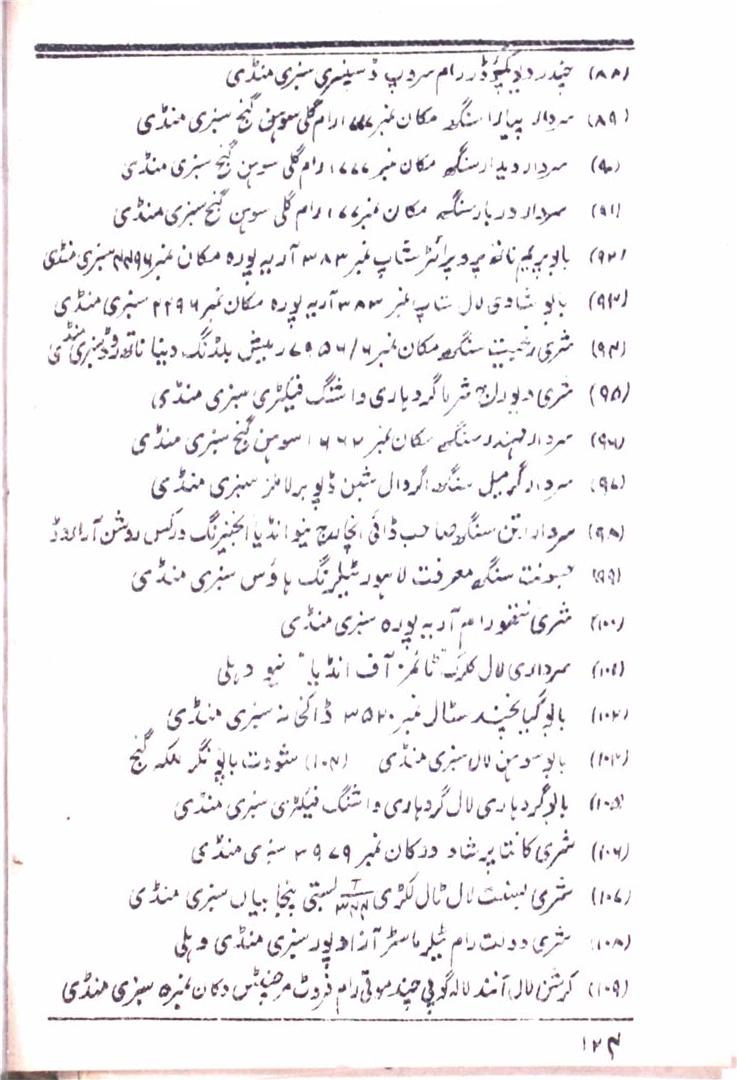 (۸۸) چندر دیو کمپوڈر رام سروپ ڈسپنسری سبزی منڈی
(۸۹) سردار پیارا سنگھ مکان نمبر ۱۷۷۷ رام گلی سوہن گنج سبزی منڈی
(۹۰) سردار دیدار سنگھ مکان نمبر ۱۷۷۷ رام گلی سوہن گنج سبزی منڈی
(۹۱) سردار دربار سنگھ مکان نمبر ۱۷۷ رام گلی سوہن گنج سبزی منڈی
(۹۲) بابو پریم ناتھ پروپرائٹر شاپ نمبر ۳۸۳ آریہ پورہ مکان نمبر ۲۲۹۶ سبزی منڈی
(۹۳) بابو شادی لال شاپ نمبر ۳۸۳ آریہ پورہ مکان نمبر ۲۲۹۶ سبزی منڈی
(۹۴) شری رنجیت سنگھ مکان نمبر ۷۹۵۶/۶ رمیش بلڈنگ دینا ناتھ روڈ سبزی منڈی
(۹۵) شری دیوراج شرما گردہاری واشنگ فیکٹری سبزی منڈی
(۹۶) سردار مہندر سنگھ مکان نمبر ۱۶۶۲ سوہن گنج سبزی منڈی
(۹۷) سردار گرمیل سنگھ اگروال شبن ڈپو برلا ملز سبزی منڈی
(۹۸) سردار رتن سنگھ صاحب ڈائی انچارج نیو انڈیا انجنیرنگ ورکس روشن آرا روڈ
(۹۹) جسونت سنگھ معرفت لاہور ٹیلرنگ ہاؤس سبزی منڈی
(۱۰۰) شری نتھو رام آریہ پورہ سبزی منڈی
(۱۰۱) سرداری لال کلرک "ٹائمز آف انڈیا" نیو دہلی
(۱۰۲) بابو گیانچند سٹال نمبر ۳۵۲۰ ڈاکخانہ سبزی منڈی
(۱۰۳) بابو سوہن لال سبزی منڈی (۱۰۴) بابو نگر ملکہ گنج
(۱۰۵) بابو گردہاری لال گردہاری واشنگ فیکٹری سبزی منڈی
(۱۰۶) شری کانتا پرشاد دوکان نمبر ۳۹۷۹ سبزی منڈی
(۱۰۷) شری بسنت لال ٹال لکڑی بستی پنجابیاں سبزی منڈی
(۱۰۸) شری دولت رام ٹیلر ماسٹر آزاد پور سبزی منڈی دہلی
(۱۰۹) کرشن لال آنند لالہ گوپی چند موتی رام فروٹ مرچنٹس دکان نمبر ۵ سبزی منڈی
۱۲۴